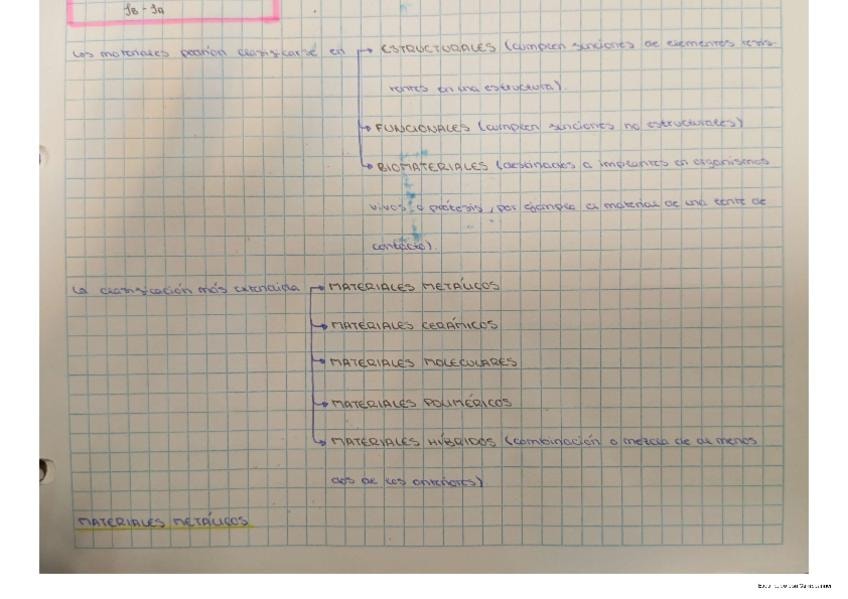 Los materiales podrían clasificarse en → ESTRUCTURALES (cumplen funciones de elementos resis-
tentes en una estructura).
→ FUNCIONALES (cumplen funciones no estructurales)
→ BIOMATERIALES (destinados a implantes en organismos
vivos o prótesis, por ejemplo el material de una lente de
contacto).
La clasificación más extendida → MATERIALES METÁLICOS
→ MATERIALES CERÁMICOS
→ MATERIALES MOLECULARES
→ MATERIALES POLIMÉRICOS
→ MATERIALES HÍBRIDOS (combinación o mezcla de al menos
dos de los anteriores)
MATERIALES METÁLICOS